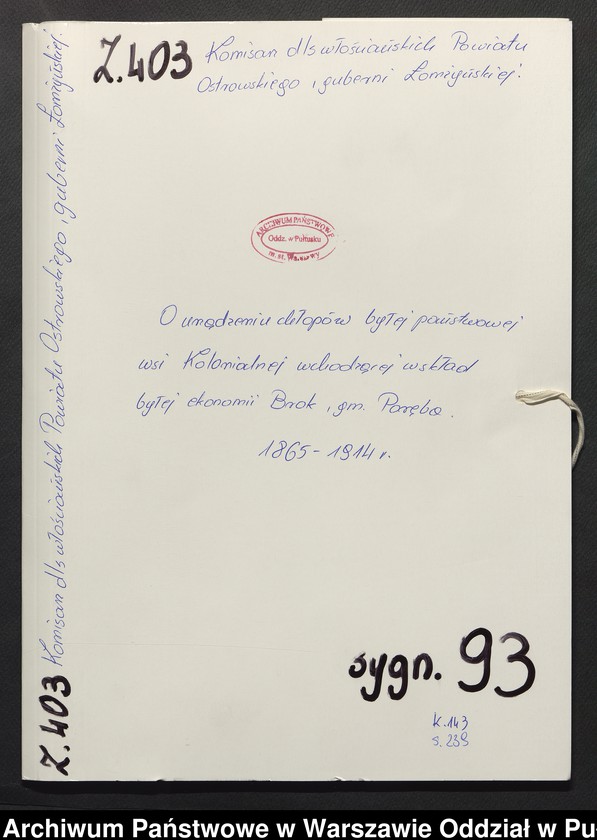 Z.403 Komisarz dls włościańskich Powiatu
Ostrowskiego, guberni Łomżyńskiej.
ARCHIWUM PAŃSTWOWE
Oddz. w Pułtusku
m. st. Warszawy
O urządzeniu chłopów byłej państwowej
wsi Kolonialnej wchodzącej w skład
byłej ekonomii Brok, gm. Poręba.
1865-1914 r.
sygn. 93
k. 143
s. 239
Z.403 Komisarz dls włościańskich Powiatu Ostrowskiego, guberni Łomżyńskiej.
Archiwum Państwowe w Warszawie Oddział w Pu